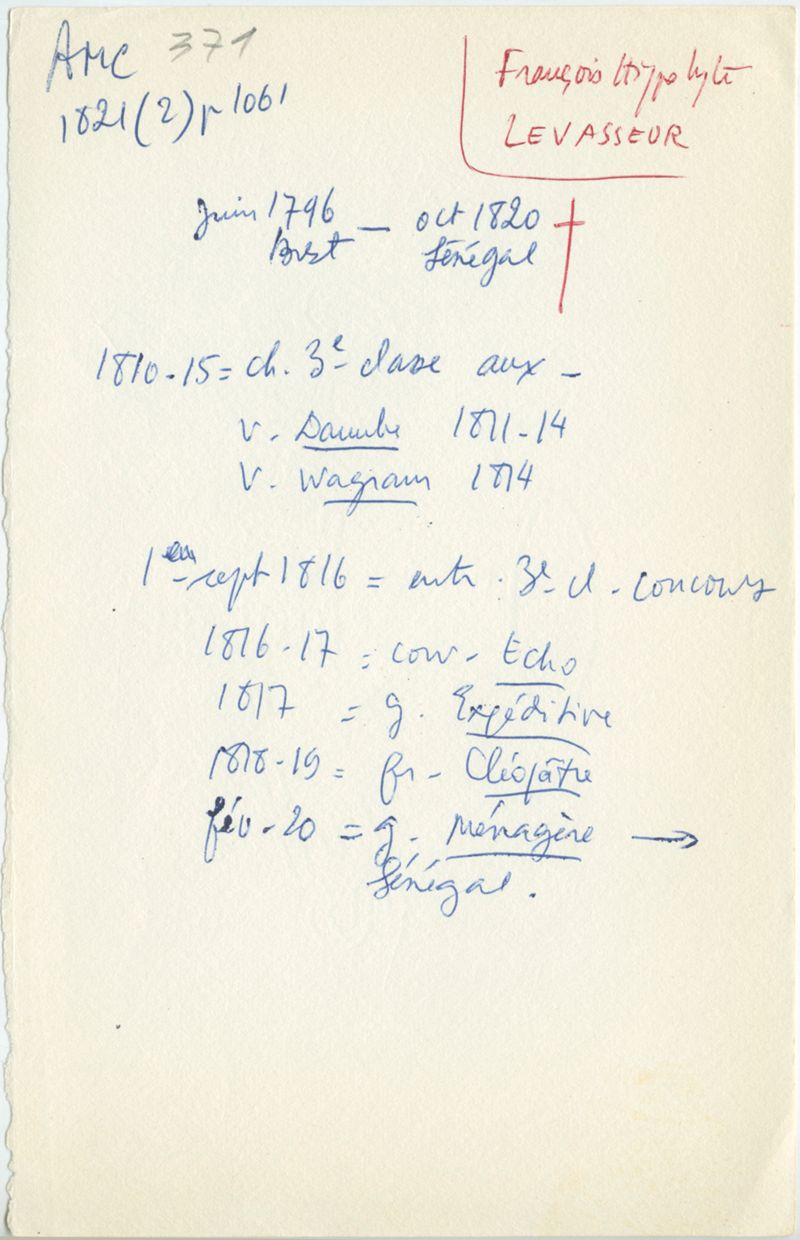 AMC 371
1821(2) p 1061
François Hippolyte
LEVASSEUR
Juin 1796 — oct 1820 †
Brest Sénégal
1810-15 = ch. 3e classe aux -
v. Danube 1811-14
V. Wagram 1814
1er sept 1816 = entr. 3e cl - concours
1816-17 = corv - Echo
1817 = g. Expéditive
1818-19 = fr - Cléopâtre
fév - 20 = g. Ménagère →
Sénégal.